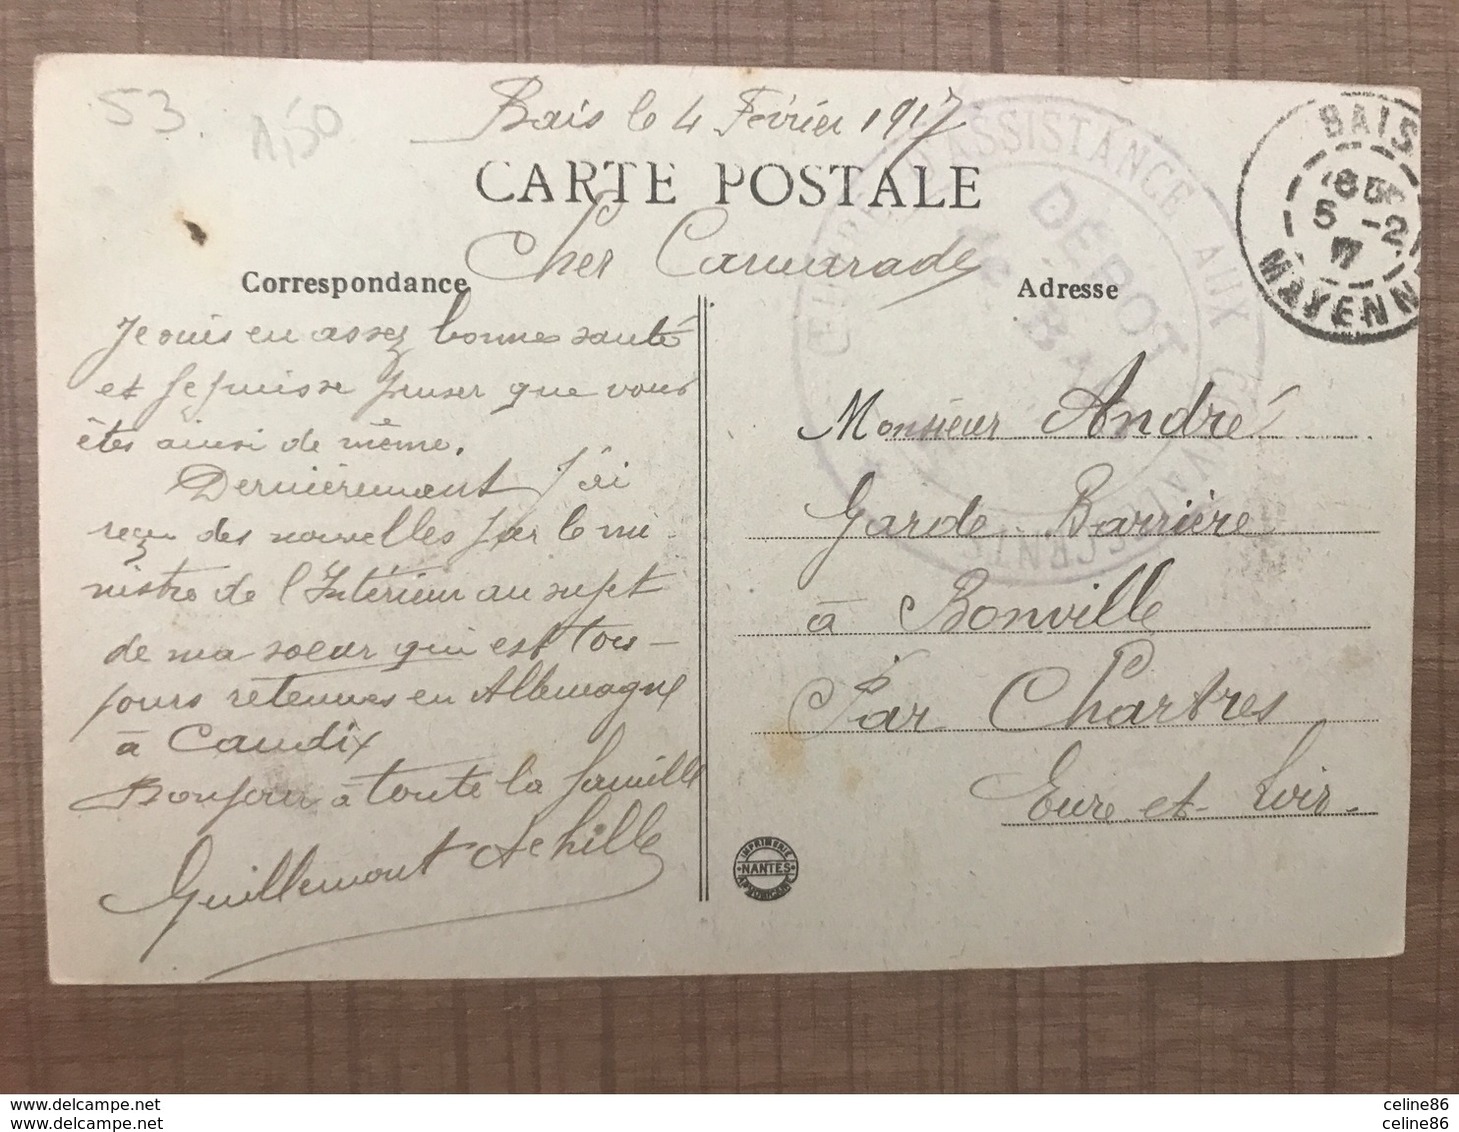 53. 1,50
Bais le 4 Février 1917
CARTE POSTALE
Cher Camarade
Correspondance
Je suis en assez bonnes santé
et je puisse penser que vous
êtes ainsi de même.
Dernièrement j'ai
reçu des nouvelles par le mi-
nistre de l'Intérieur au sujet
de ma soeur qui est tou-
jours retenues en Allemagne
à Caudix
Bonjour à toute la famille
Guillemont Achille
Adresse
Monsieur André
Garde-Barrière
à Bonville
Par Chartres
Eure-et-Loir.
D'ASSISTANCE AUX CONVALESCENTS
DÉPOT
de BAIS
BAIS
5 -2
17
MAYENNE
IMPRIMERIE
NANTES
ARMORICAINE
www.delcampe.net
www.delcampe.net
celine86
celine86